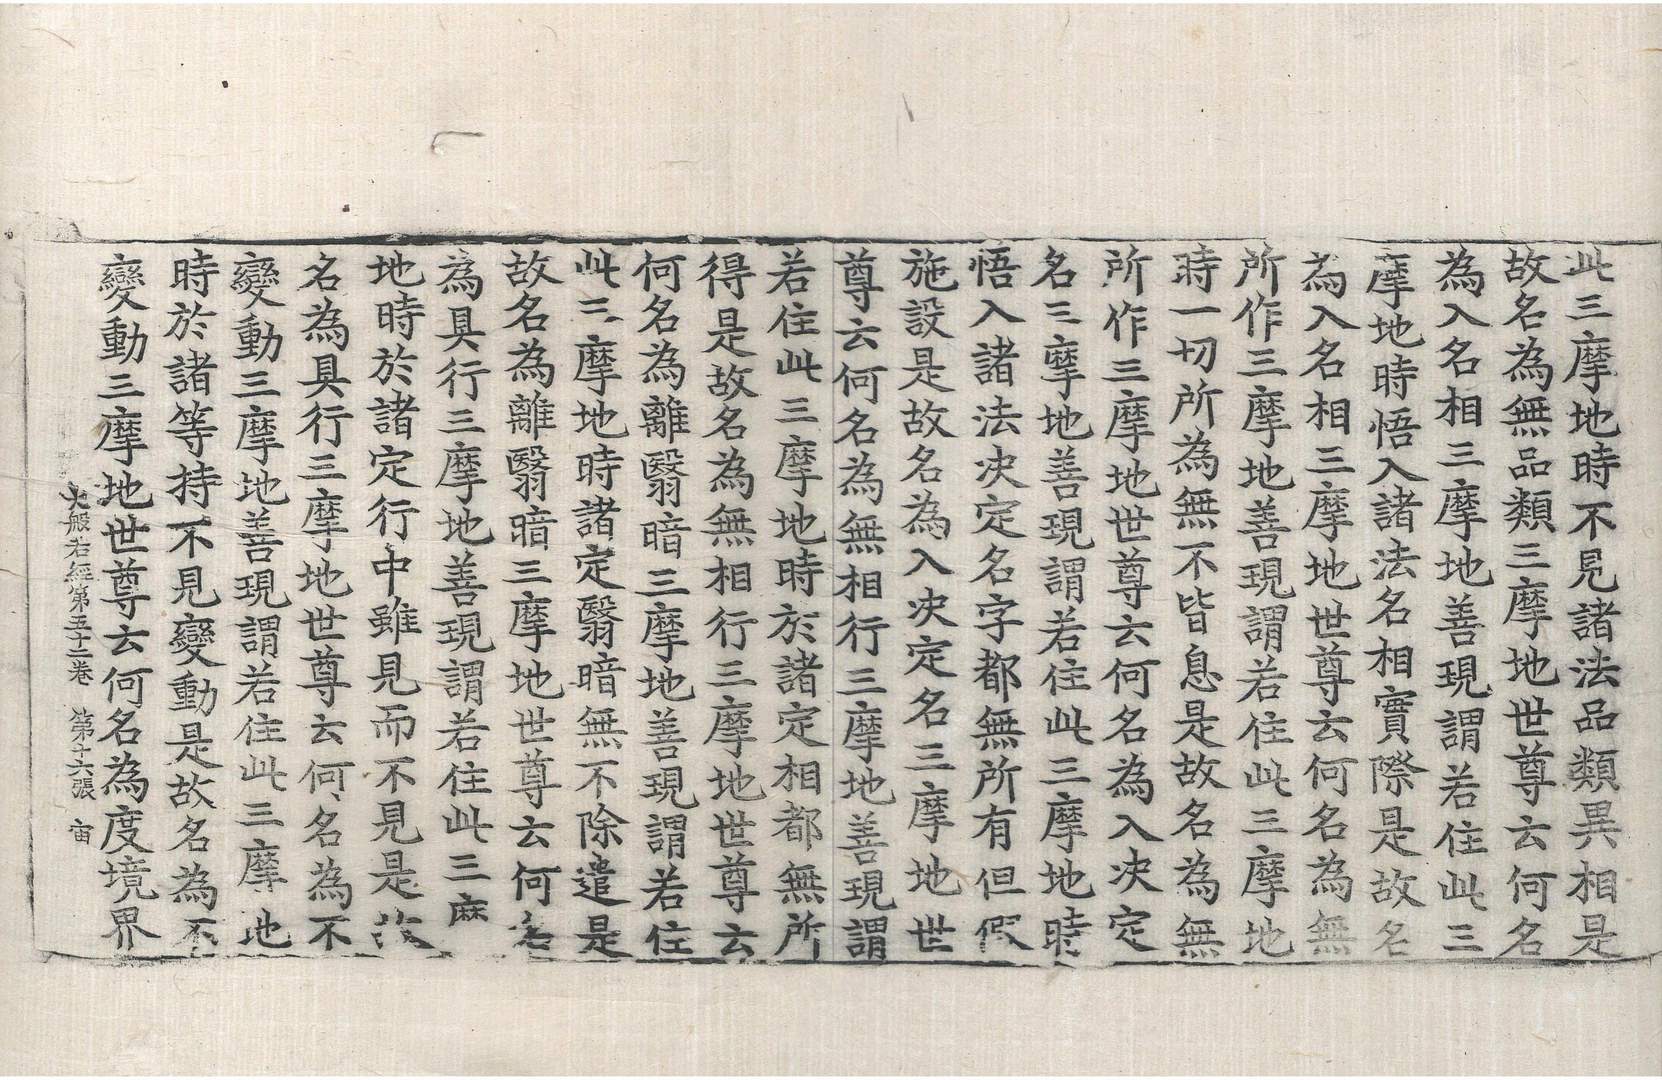 此三摩地時不見諸法品類異相是
故名為無品類三摩地世尊云何名
為入名相三摩地善現謂若住此三
摩地時悟入諸法名相實際是故名
為入名相三摩地世尊云何名為無
所作三摩地善現謂若住此三摩地
時一切所為無不皆息是故名為無
所作三摩地世尊云何名為入决定
名三摩地善現謂若住此三摩地時
悟入諸法决定名字都無所有但假
施設是故名為入决定名三摩地世
尊云何名為無相行三摩地善現謂
若住此三摩地時於諸定相都無所
得是故名為無相行三摩地世尊云
何名為離翳暗三摩地善現謂若住
此三摩地時諸定翳暗無不除遣是
故名為離翳暗三摩地世尊云何名
為具行三摩地善現謂若住此三摩
地時於諸定行中雖見而不見是故
名為具行三摩地世尊云何名為不
變動三摩地善現謂若住此三摩地
時於諸等持不見變動是故名為不
變動三摩地世尊云何名為度境界
大般若經第五十二卷 第十六張 宙